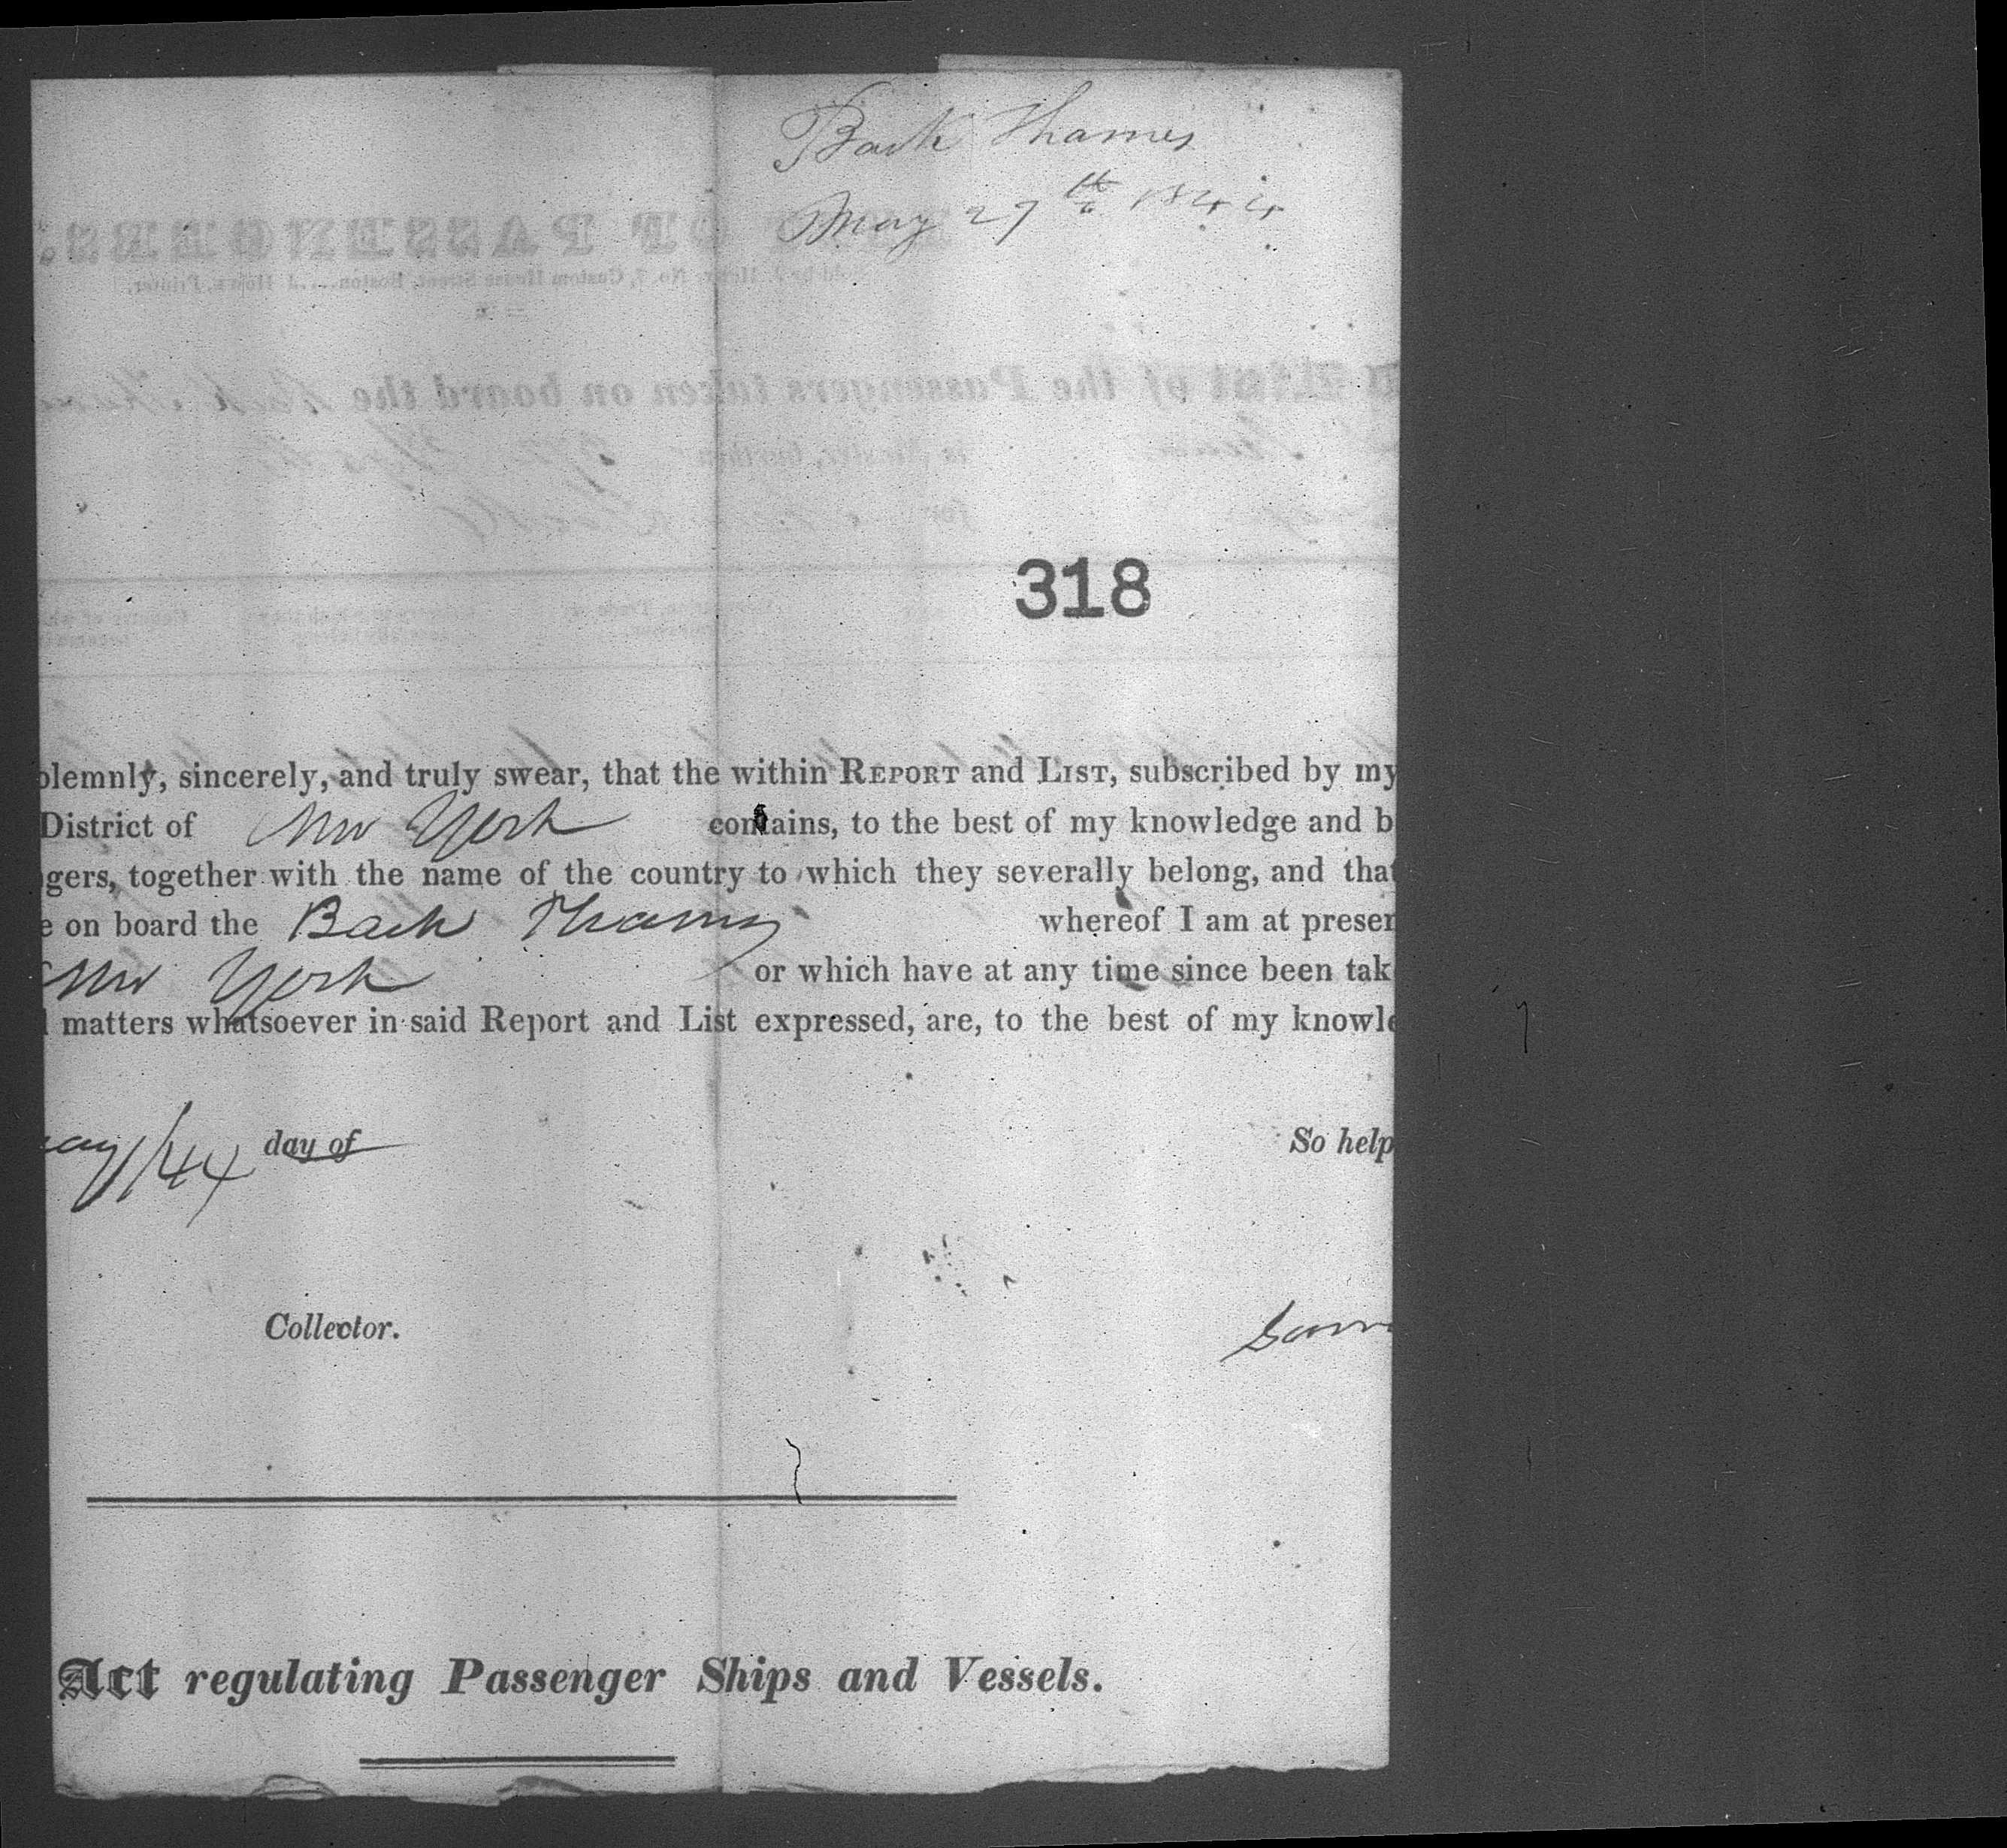 Bark Thames
May 27th 1844
318
olemnly, sincerely, and truly swear, that the within REPORT and LIST, subscribed by my
District of New York contains, to the best of my knowledge and b
gers, together with the name of the country to which they severally belong, and that
e on board the Bark Thames whereof I am at presen
New York or which have at any time since been tak
matters whatsoever in said Report and List expressed, are, to the best of my knowle
ay/44 day of So help
Collector.
Act regulating Passenger Ships and Vessels.